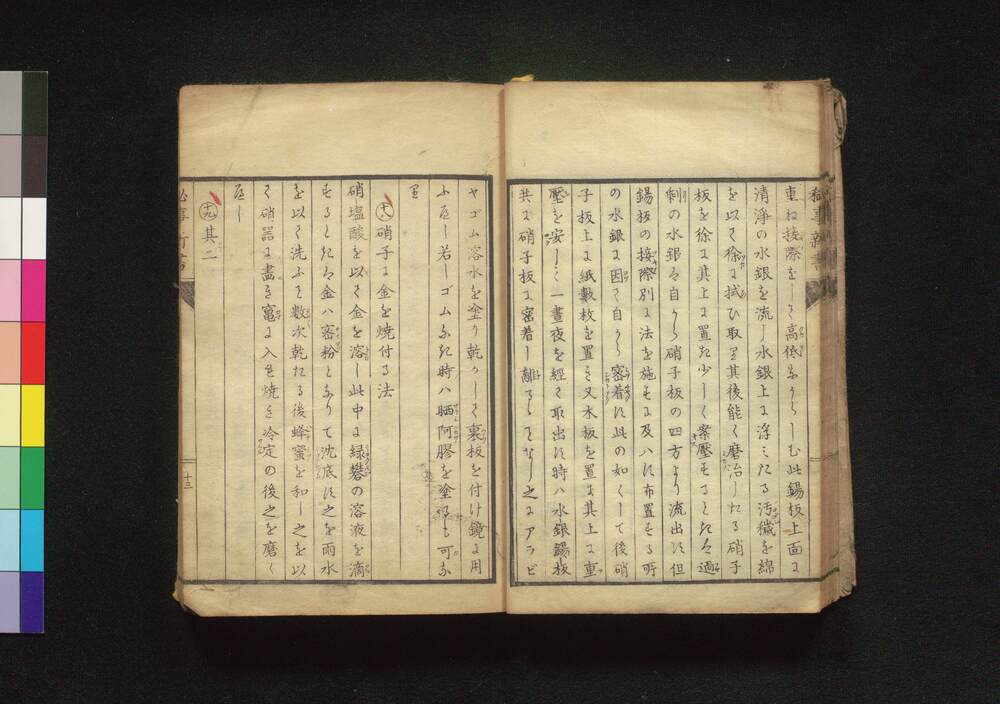 重ね接際をして高低なからしむ此錫板上面に
清浄の水銀を流し水銀上に浮ミたる汚穢を綿
を以て徐に拭ひ取り其後能く磨治したる硝子
板を徐に其上に置き少しく案壓するときは過
剰の水銀は自から硝子板の四方より流出す但
錫板の接際別に法を施すに及ハす布置する所
の水銀に因て自から密着す此の如くして後硝
子板上に紙數枚を置き又木板を置き其上に重
壓を安し一晝夜を經て取出す時ハ水銀錫板
共に硝子板に密着し離るゝことなし之にアラビ
ヤゴム溶水を塗り乾かして裏板を付け鏡に用
ふべし若しゴムなき時ハ晒阿膠を塗るも可な
り
十八 硝子に金を焼付る法
硝塩酸を以て金を溶し此中に緑礬の溶液を滴
するときは金ハ密粉となりて沈底す之を雨水
を以て洗ふこと数次乾たる後蜂蜜を和し之を以
て硝器に畫き竈に入を焼き冷定の後之を磨く
べし
十九 其二
十三